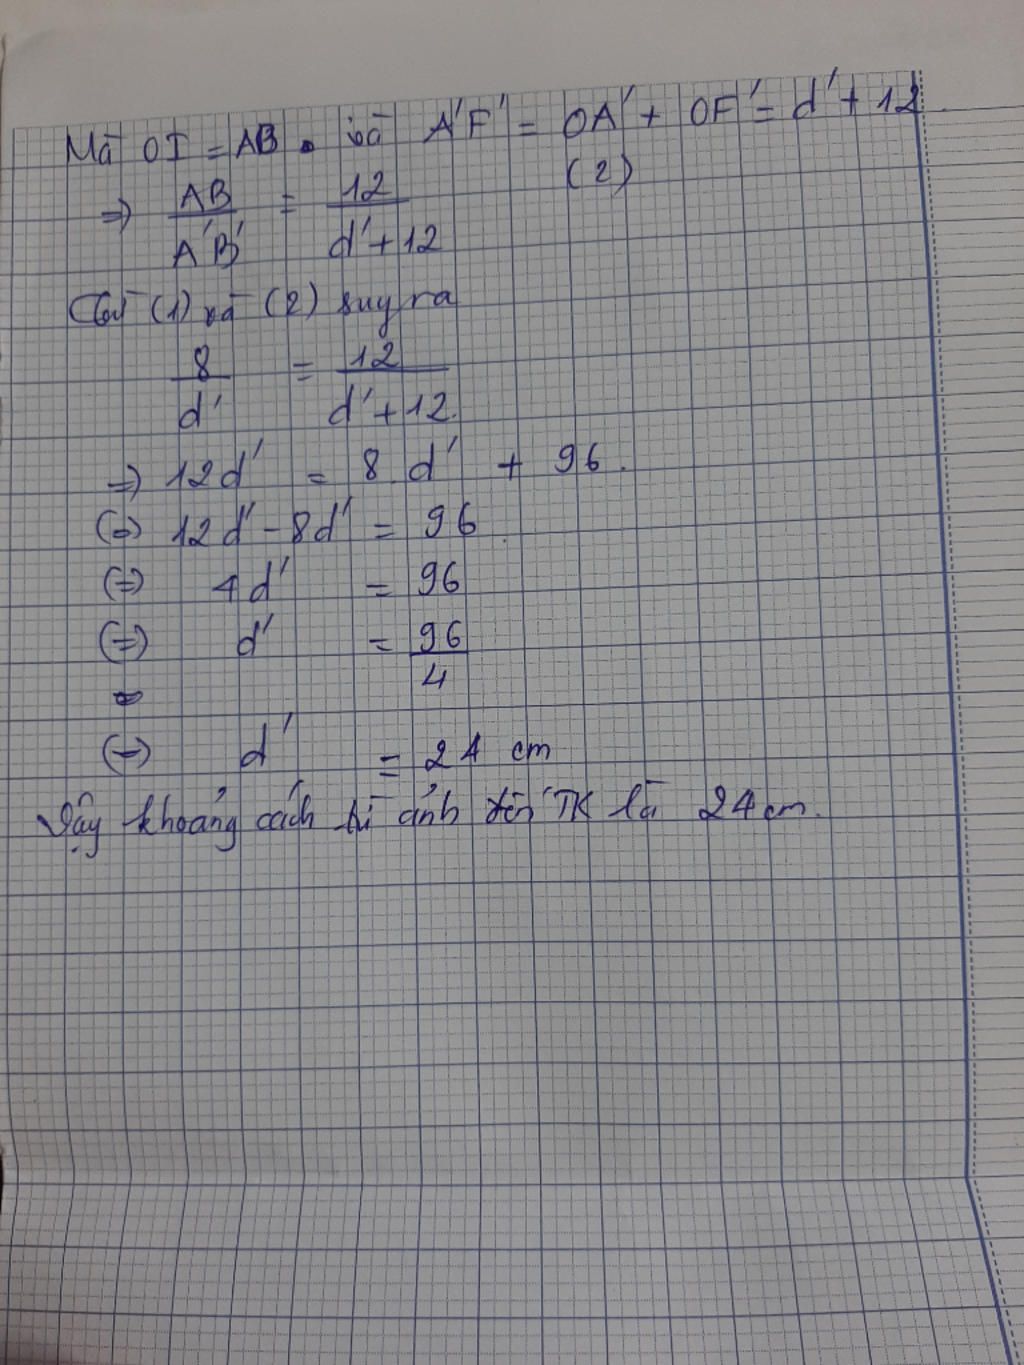 Mà OI = AB. và A'F' = OA' + OF' = d' + 12
(2)
⇒ AB/A'B' = 12/(d'+12)
Từ (1) và (2) suy ra
8/d' = 12/(d'+12).
⇒ 12d' = 8.d' + 96.
(⇔) 12d' - 8d' = 96.
(⇔) 4d' = 96
(⇔) d' = 96/4
(⇔) d' = 24 cm
Vậy khoảng cách từ ảnh đến TK là 24cm.